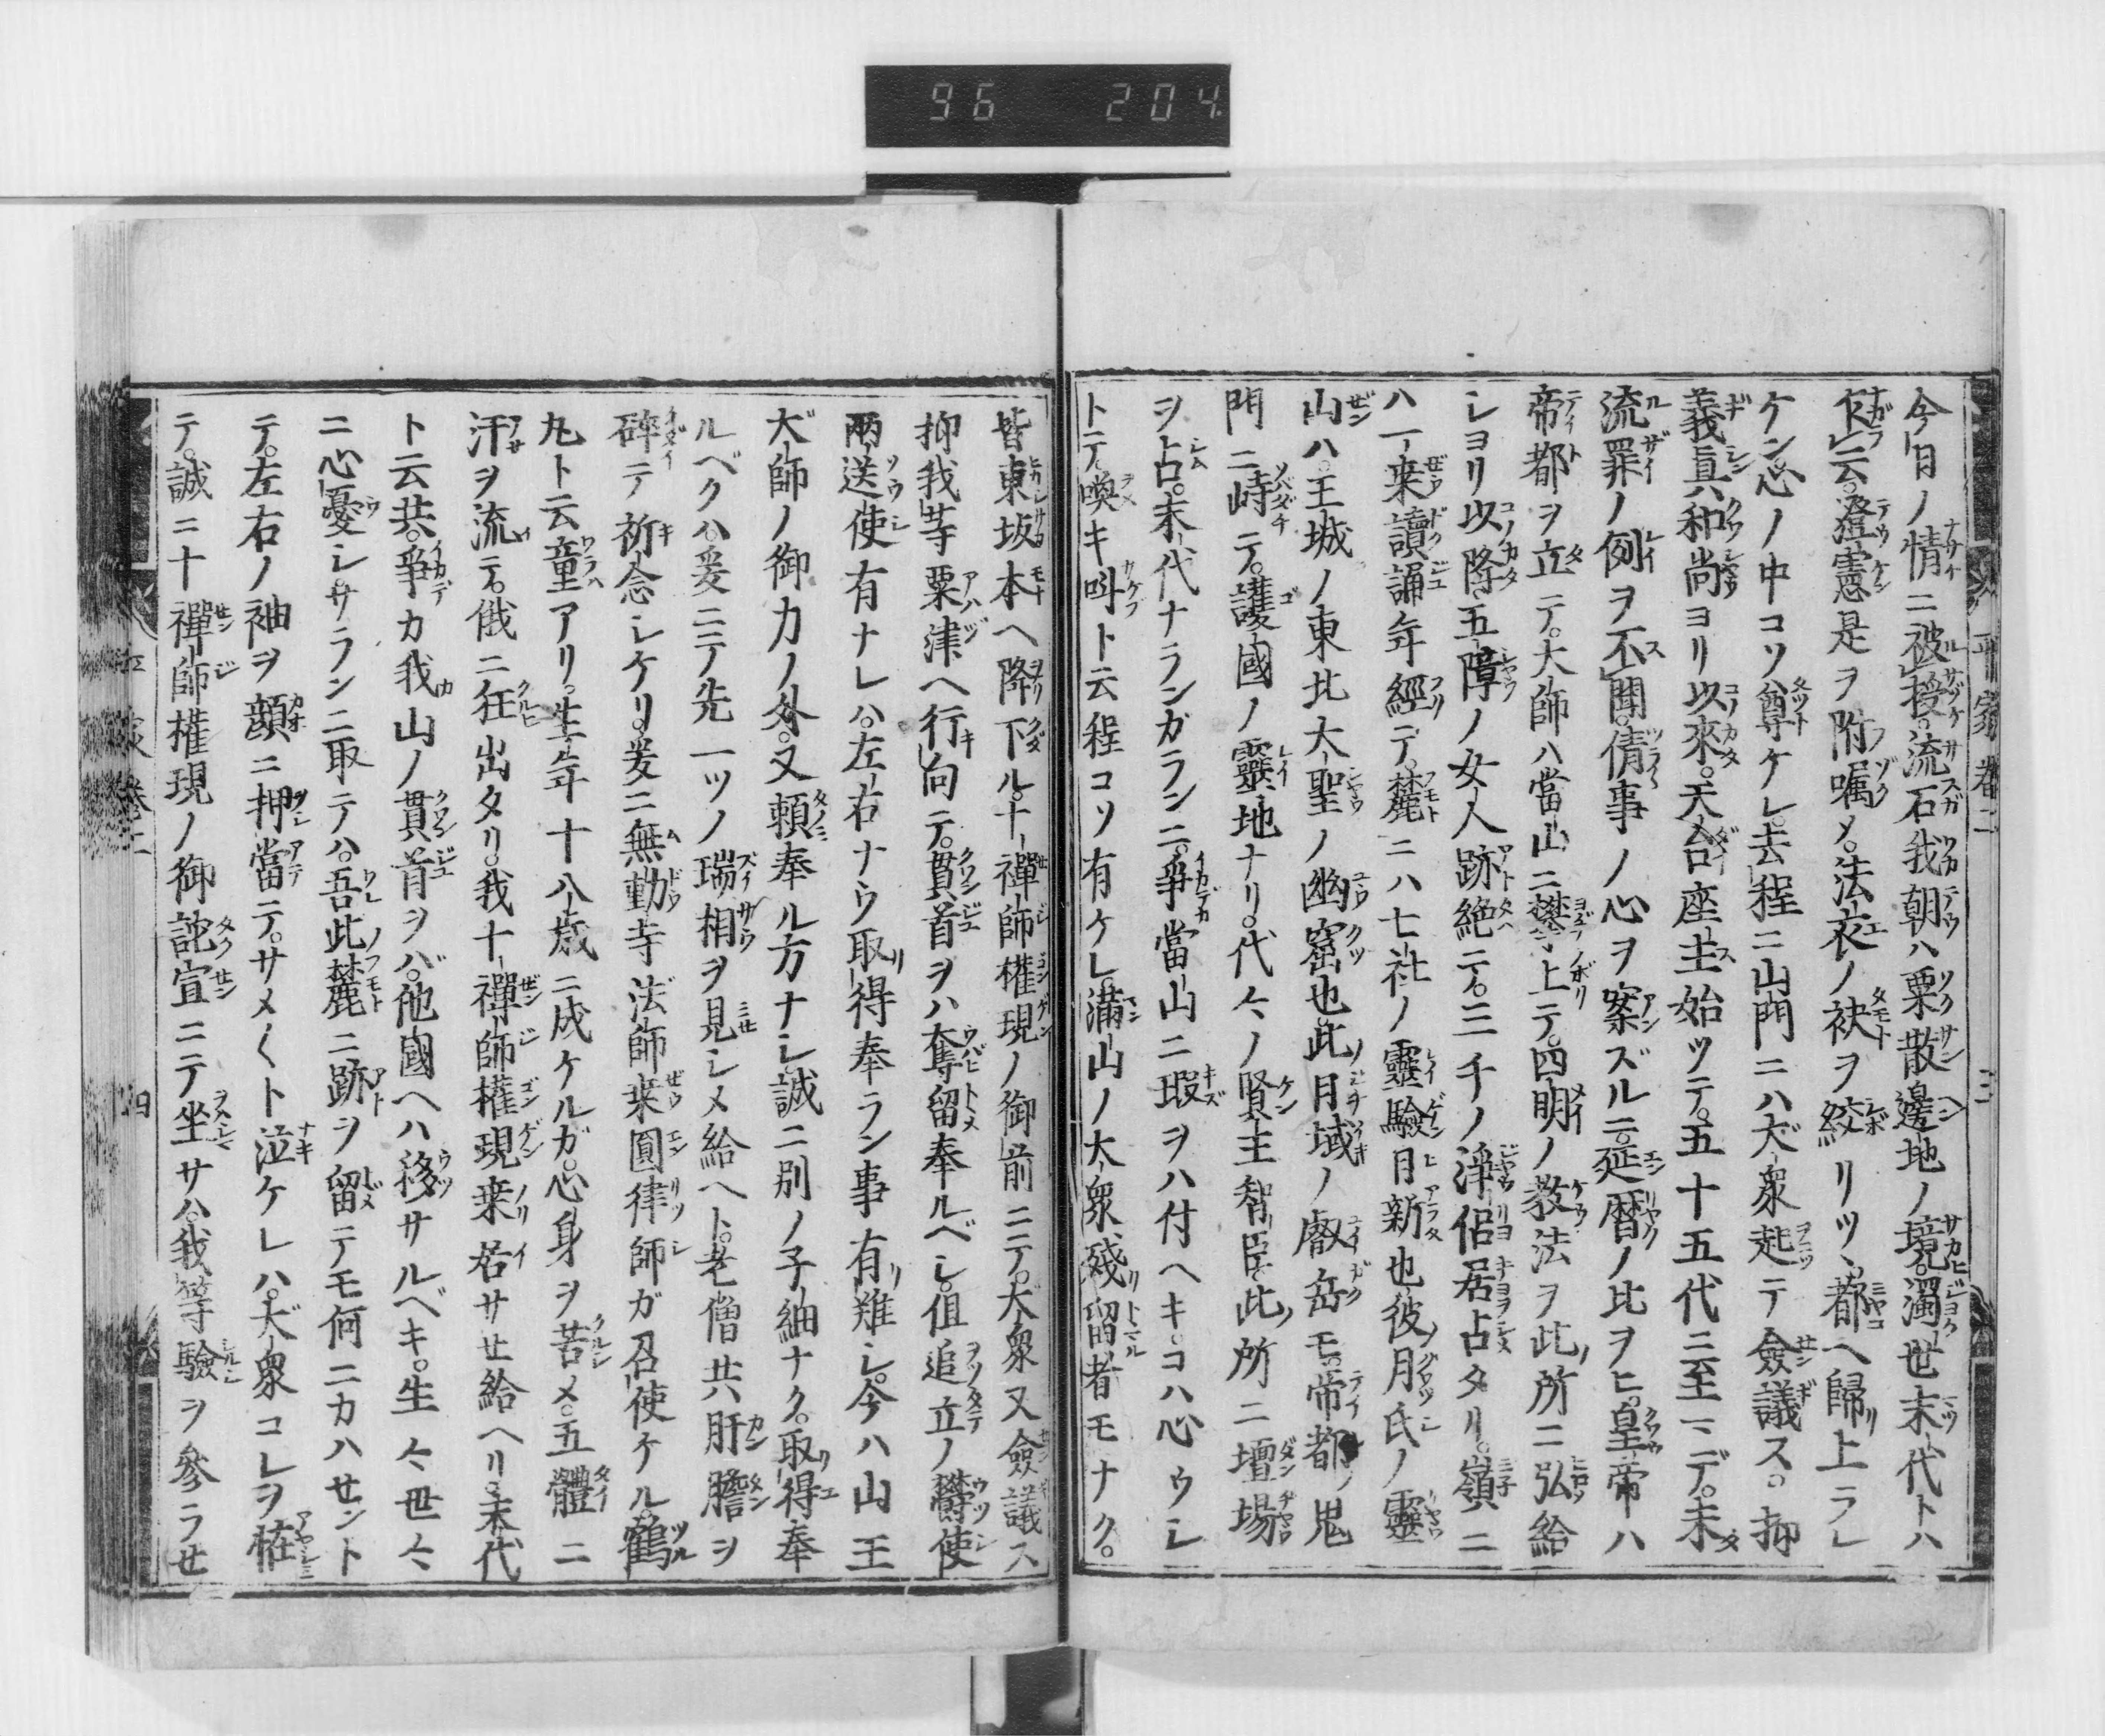 96 204
今日ノ情ニ被授。流石我朝ハ粟散邊地ノ境。濁世末代トハ
乍云。澄憲是ヲ附嘱メ。法衣ノ袂ヲ絞リツヽ都ヘ歸上ラレ
ケン。心ノ中コソ尊ケレ。去程ニ山門ニハ大衆起テ僉議ス。抑
義眞和尚ヨリ以來。天台座主始ツテ。五十五代ニ至マデ。未
流罪ノ例ヲ不聞。倩事ノ心ヲ案ズルニ。延暦ノ比ヲヒ。皇帝ハ
帝都ヲ立テ。大師ハ當山ニ攀上テ。四明ノ教法ヲ此所ニ弘給
シヨリ以降。五障ノ女人跡絶テ。三千ノ淨侶居占タリ。嶺ニ
ハ一乗讀誦年經テ。麓ニハ七社ノ靈驗日新也。彼月氏ノ靈
山ハ。王城ノ東北大聖ノ幽窟也。此日域ノ叡岳モ。帝都ノ鬼
門ニ峙テ。護國ノ靈地ナリ。代々ノ賢主智臣。此所ニ壇場
ヲト占。末代ナランガランニ。爭當山ニ瑕ヲハ付ヘキ。コハ心ウシ
トテ。喚キ叫ト云程コソ有ケレ。滿山ノ大衆。殘留者モナク。
平家巻二 三
皆東坂本ヘ降下ル。十禪師權現ノ御前ニテ。大衆又僉議ス
抑我等粟津ヘ行向テ。貫首ヲハ奪留奉ルベシ。但追立ノ欝使
兩送使有ナレハ。左右ナウ取得奉ラン事有難シ。今ハ山王
大師ノ御力ノ外。又頼奉ル方ナシ。誠ニ別ノ子細ナク。取得奉
ルベクハ。爰ニテ先一ツノ瑞相ヲ見シメ給ヘト。老僧共肝膽ヲ
碎テ祈念シケリ。爰ニ無動寺法師乗圓律師ガ召使ケル。鶴
丸ト云童アリ。生年十八歳ニ成ケルガ。心身ヲ苦メ。五體ニ
汗ヲ流テ。俄ニ狂出タリ。我十禪師權現乗居サセ給ヘリ。末代
ト云共。爭カ我山ノ貫首ヲハ。他國ヘハ移サルベキ。生々世々
ニ心憂シ。サランニ取テハ。吾此麓ニ跡ヲ留テモ何ニカハセント
テ。左右ノ袖ヲ顔ニ押當テ。サメ〱ト泣ケレハ。大衆コレヲ恠
テ。誠ニ十禪師權現ノ御詫宣ニテ坐サハ。我等驗ヲ參ラセ
平家巻二 四